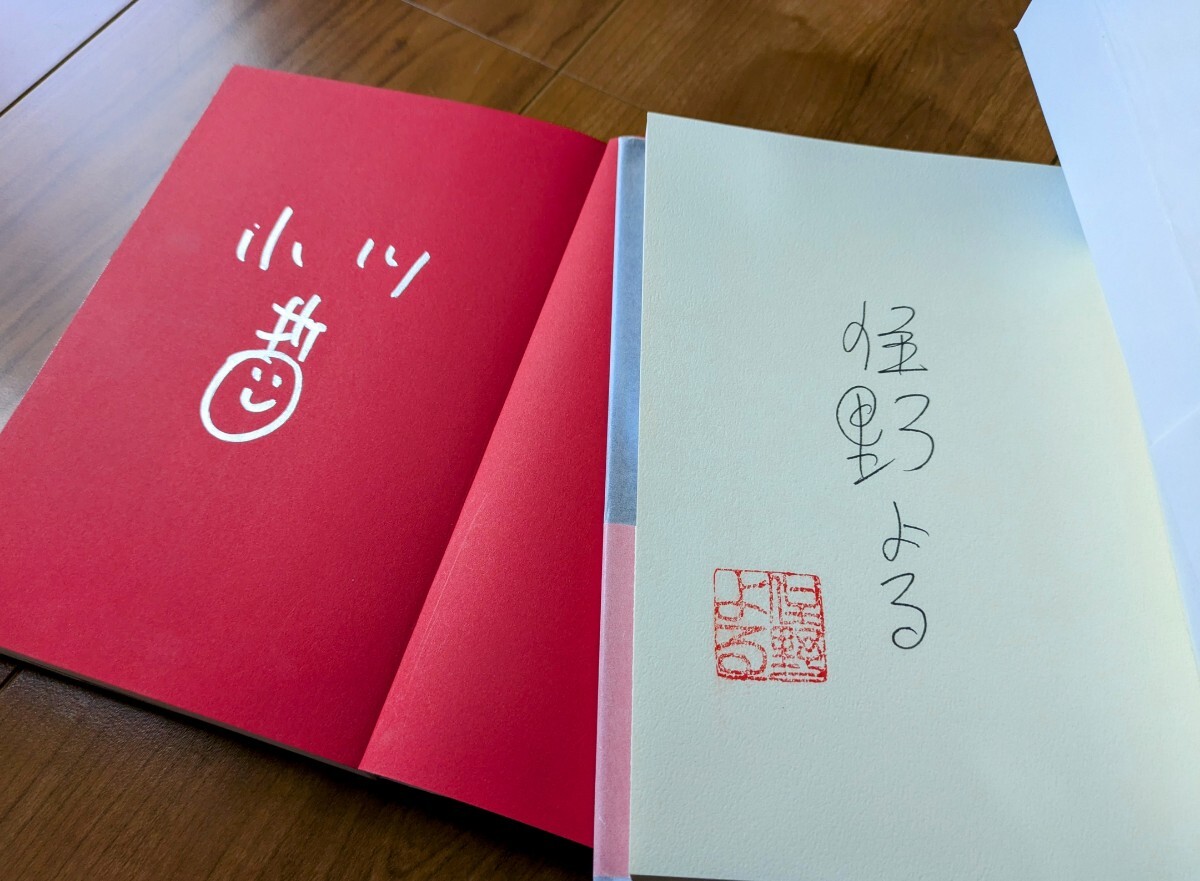 小川
哲
住野よる